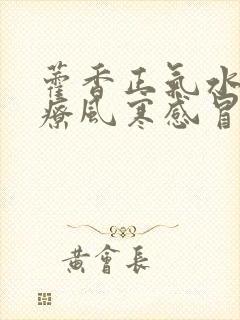 藿香正氣水
療風寒感冒
黃會長